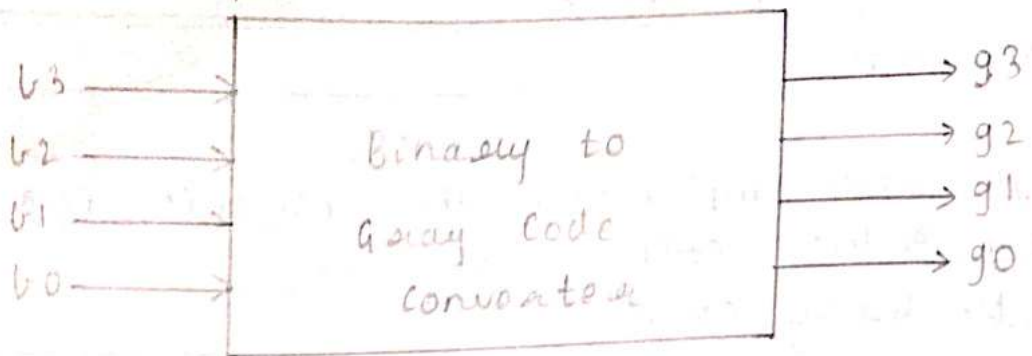 b3
b2
b1
b0
Binary to
Gray Code
converter
g3
g2
g1
g0